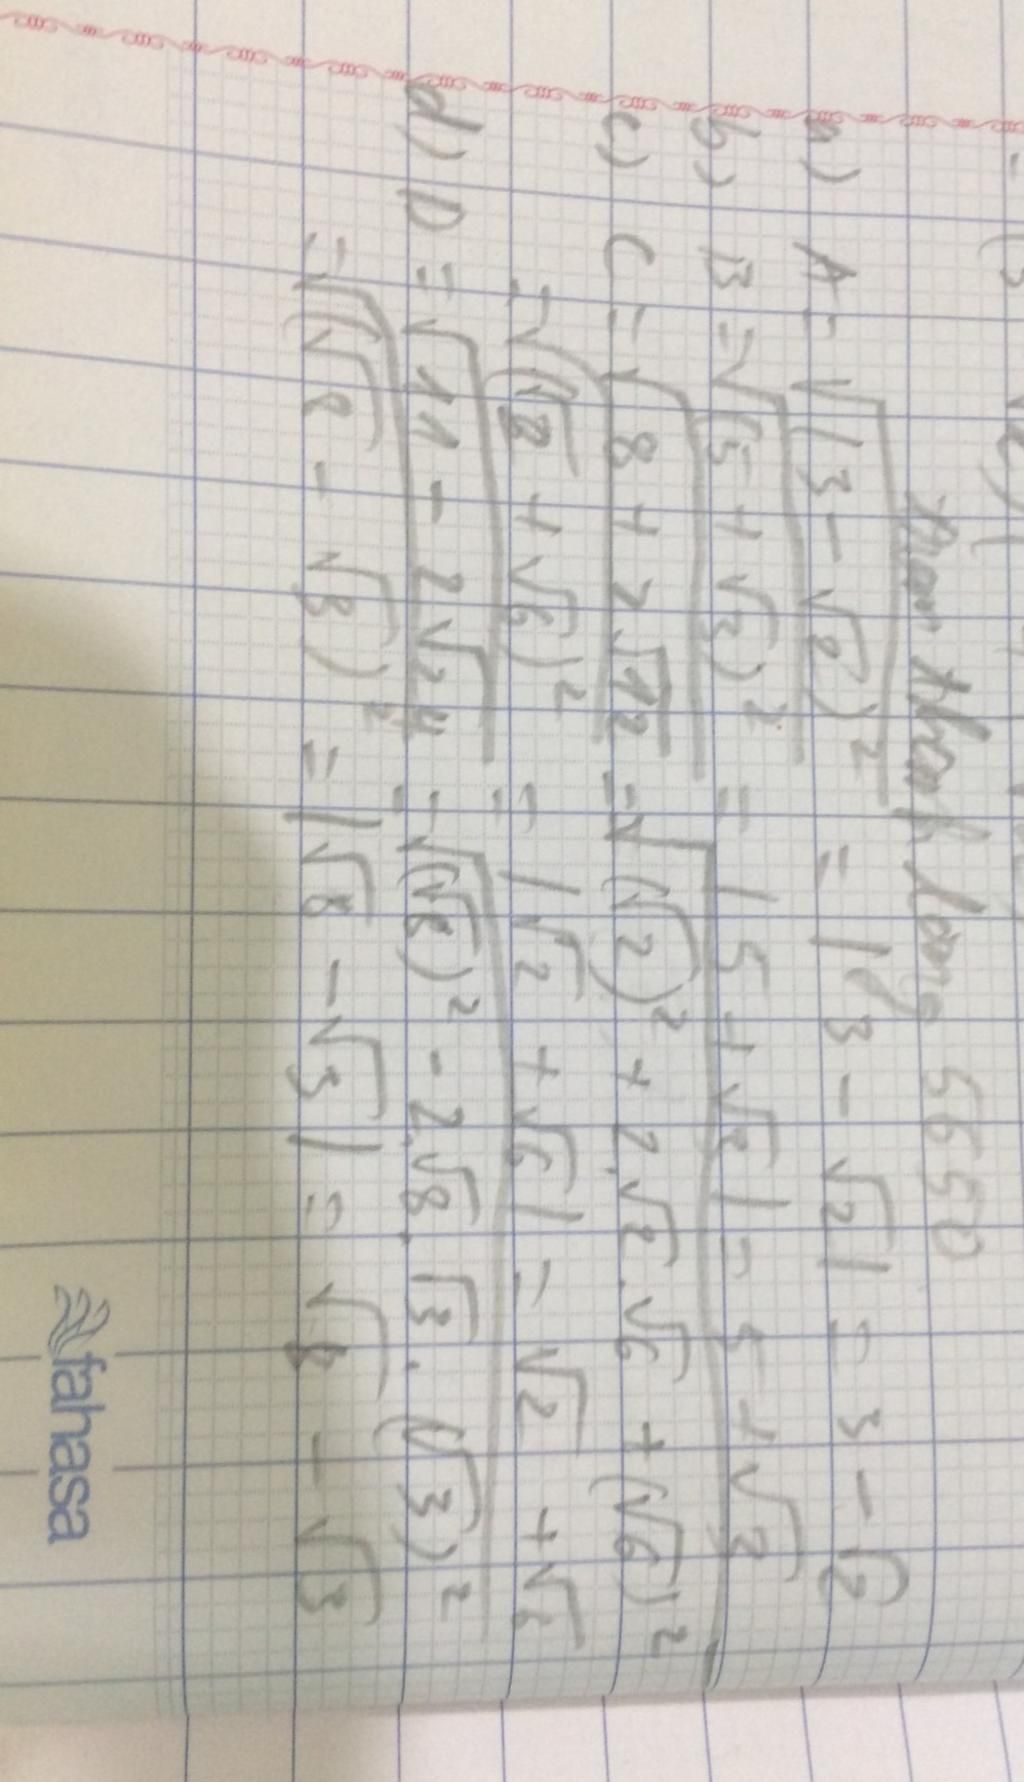 Phan thanh long 5650
a) A = √(3 - √2)² = |3 - √2| = 3 - √2
b) B = √(5 + √2)² = |5 + √2| = 5 + √2
c) C = √8 + 2.√12 = √(√2)² + 2.√2.√6 + (√6)²
= √(√2 + √6)² = |√2 + √6| = √2 + √6
d) D = √11 - 2√24 = √(√8)² - 2.√8.√3.(√3)²
= √(√8 - √3)² = |√8 - √3| = √8 - √3
fahasa